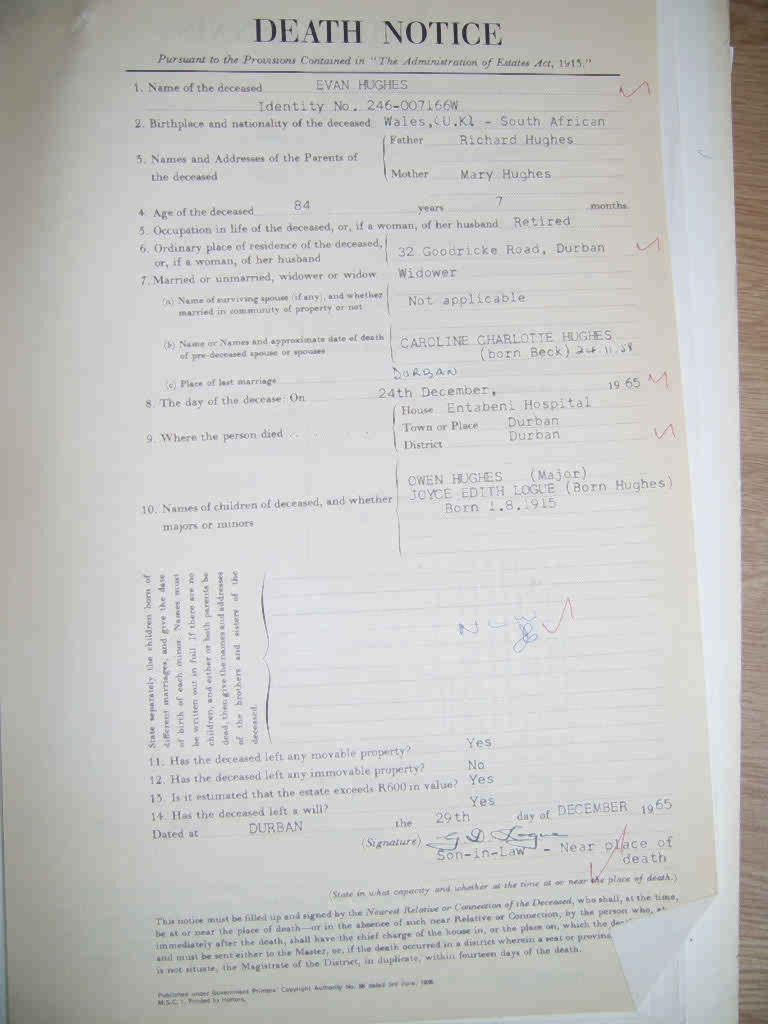 DEATH NOTICE
Pursuant to the Provisions Contained in "The Administration of Estates Act, 1913."
1. Name of the deceased EVAN HUGHES
Identity No. 246-007166W
2. Birthplace and nationality of the deceased Wales,(U.K) - South African
3. Names and Addresses of the Parents of the deceased
Father Richard Hughes
Mother Mary Hughes
4. Age of the deceased 84 years 7 months
5. Occupation in life of the deceased, or, if a woman, of her husband Retired
6. Ordinary place of residence of the deceased, or, if a woman, of her husband
32 Goodricke Road, Durban
7. Married or unmarried, widower or widow Widower
(a) Name of surviving spouse (if any), and whether married in community of property or not
Not applicable
(b) Name or Names and approximate date of death of pre-deceased spouse or spouses
CAROLINE CHARLOTTE HUGHES
(born Beck) 24.11.58
(c) Place of last marriage DURBAN
8. The day of the decease: On 24th December, 1965
9. Where the person died
House Entabeni Hospital
Town or Place Durban
District Durban
10. Names of children of deceased, and whether majors or minors
OWEN HUGHES (Major)
JOYCE EDITH LOGUE (Born Hughes)
Born 1.8.1915
State separately the children born of
different marriages, and give the date
of birth of each minor. Names must
be written out in full. If there are no
children, and either or both parents be
dead, then give the names and addresses
of the brothers and sisters of the
deceased.
11. Has the deceased left any movable property? Yes
12. Has the deceased left any immovable property? No
13. Is it estimated that the estate exceeds R600 in value? Yes
14. Has the deceased left a will? Yes
Dated at DURBAN the 29th day of DECEMBER 1965
(Signature) G D Logue
Son-in-Law - Near place of
death
(State in what capacity and whether at the time at or near the place of death.)
This notice must be filled up and signed by the Nearest Relative or Connection of the Deceased, who shall, at the time,
be at or near the place of death—or in the absence of such near Relative or Connection, by the person who,
immediately after the death, shall have the chief charge of the house in, or the place on, which the
and must be sent either to the Master, or, if the death occurred in a district wherein a seat or
is not situate, the Magistrate of the District, in duplicate, within fourteen days of the death.
Published under Government Printers Copyright Authority No.
M.S.C. 1. Printed by Hortors,